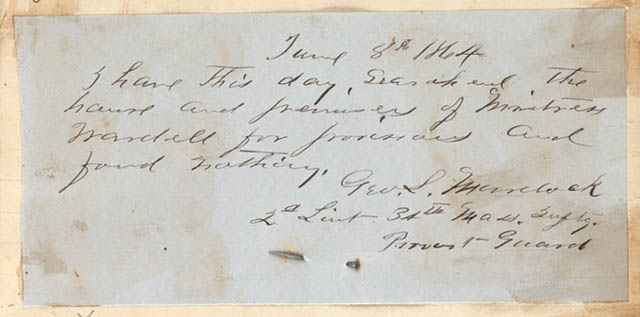 June 8th 1864
I have this day Searched the
house and premises of Mistress
Wardell for provisions and
found nothing.
Geo. S.
2d Lieut. 34th Mass. Infty.
Provost Guard